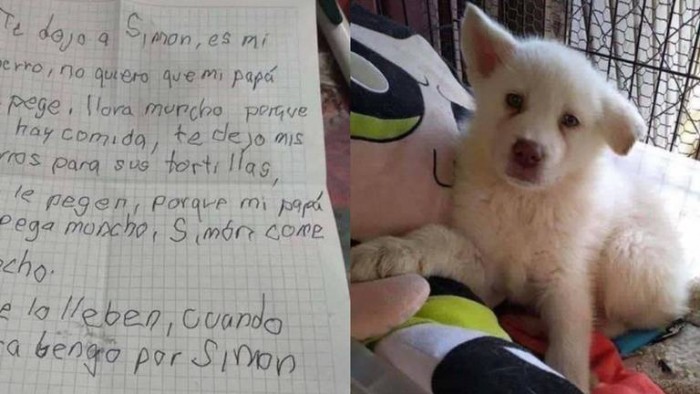 Te dejo a Simon, es mi
perro, no quiero que mi papá
pege, llora muncho porque
hay comida, te dejo mis
rros para sus tortillas,
le pegen, porque mi papá
pega muncho, Simón come
ocho.
e lo lleben, cuando
ca bengo por Simon